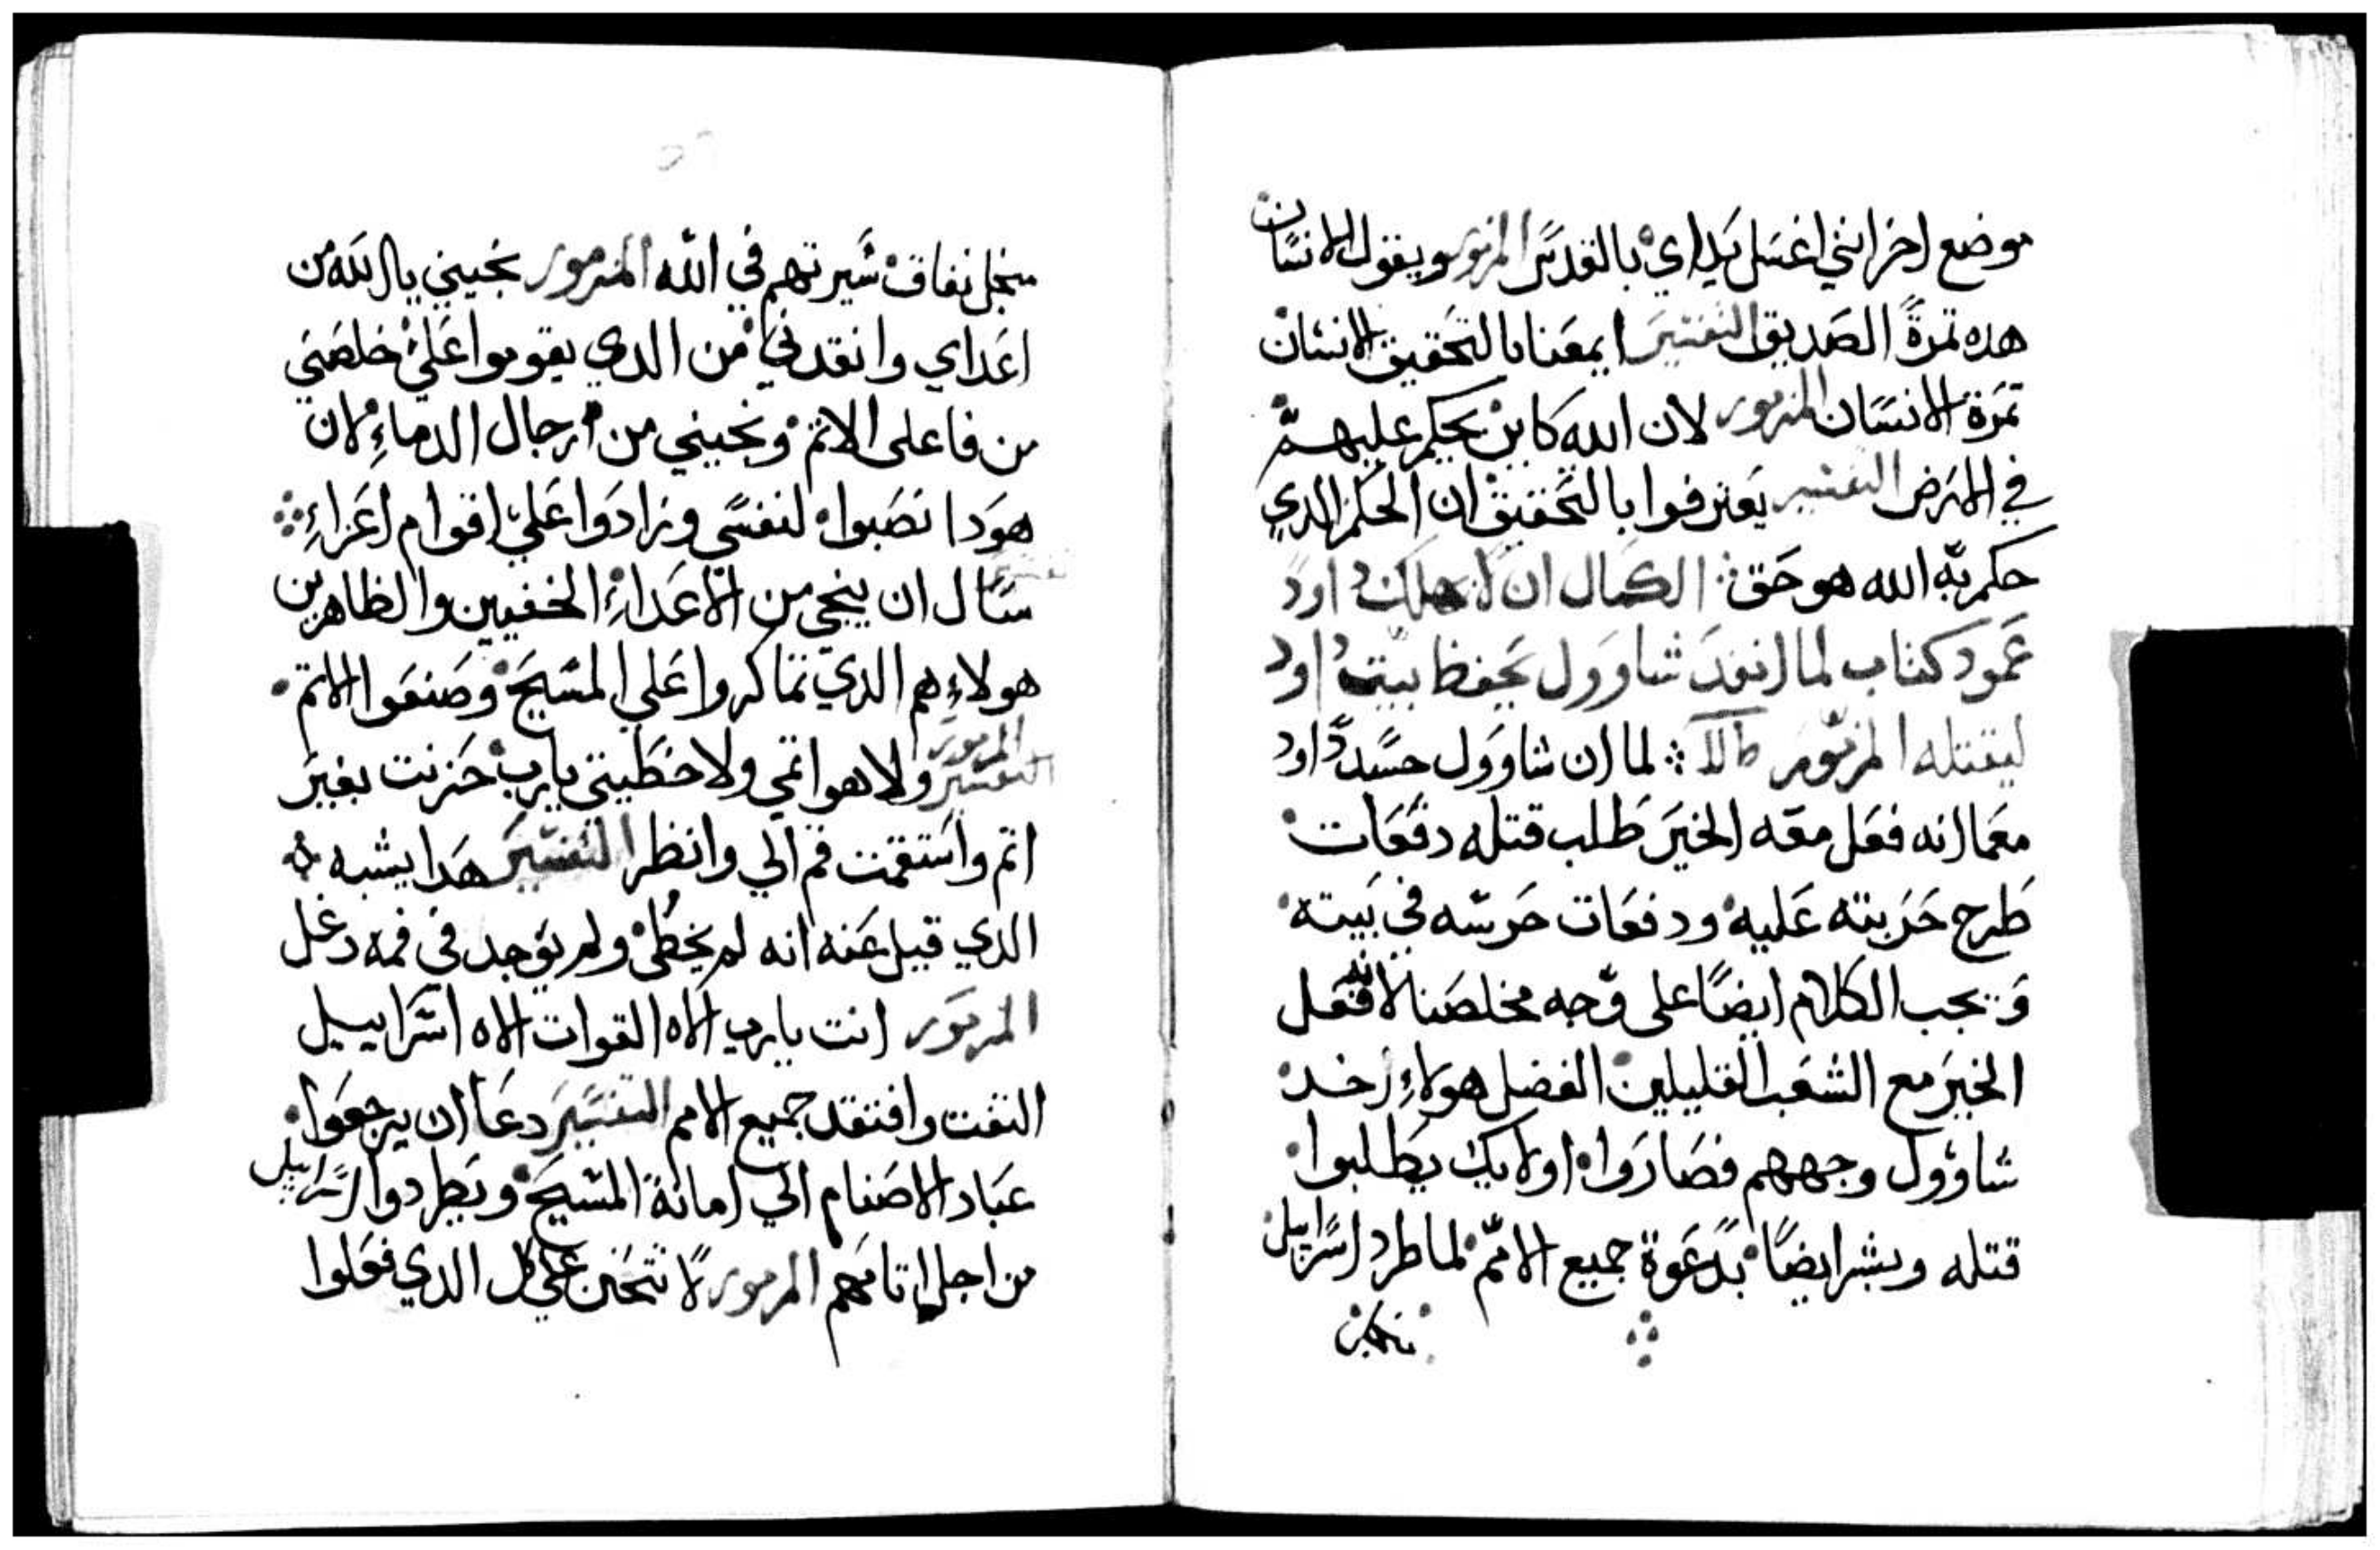 موضع اخر انني اغسل يداي بالقدس المزمور ويقول الانسان
هده تمرة الصديق التفسير ايمعنا بالتحقيق الانسان
تمرة الانسان المزمور لان الله كاين يحكم عليهم
في الارض التفسير يعترفوا بالتحقيق ان الحكم الدي
حكم به الله هو حق الكمال ان لا تهلك داود
عمود كتاب لما انفد شاوول يحفظ بيت داود
ليقتله المزمور لما ان شاوول حسد داود
معما انه فعل معه الخير طلب قتله دفعات
طرح حربته عليه ودفعات حرسه في بيته
ويجب الكلام ايضا على وجه مخلصنا لانه فعل
الخير مع الشعب القليلين الفضل هولاء اخد
شاوول وجههم فصاروا اولايك يطلبوا
قتله وبشر ايضا بدعوة جميع الامم لما طرد اسراييل
منجل نفاق سيرتهم في الله المزمور نجيني يا الله من
اعداي وانقدني من الدي يقوموا علي خلصني
من فاعلى الاتم ونجيني من رجال الدماء لان
هودا نصبوا لنفسي وزادوا علي اقوام اعزاء
تفسير
سال ان ينجي من الاعداء الخفيين والظاهرين
هولاء هم الدي تماكروا علي المسيح وصنعوا الاتم
المزمور
التفسير ولا هو اتمي ولا خطيتي يا رب حزنت بغير
اتم واستقمت قم الي وانظر التفسير هدا يشبه
الدي قيل عنه انه لم يخطئ ولم يوجد في فمه دغل
المزمور انت يا رب الاه القوات الاه اسراييل
التفت وافتقد جميع الامم التفسير دعا ان يرجعوا
عباد الاصنام الي امانة المسيح ويطردوا اسراييل
من اجل اتامهم المزمور لا تتحنن علي كل الدي فعلوا